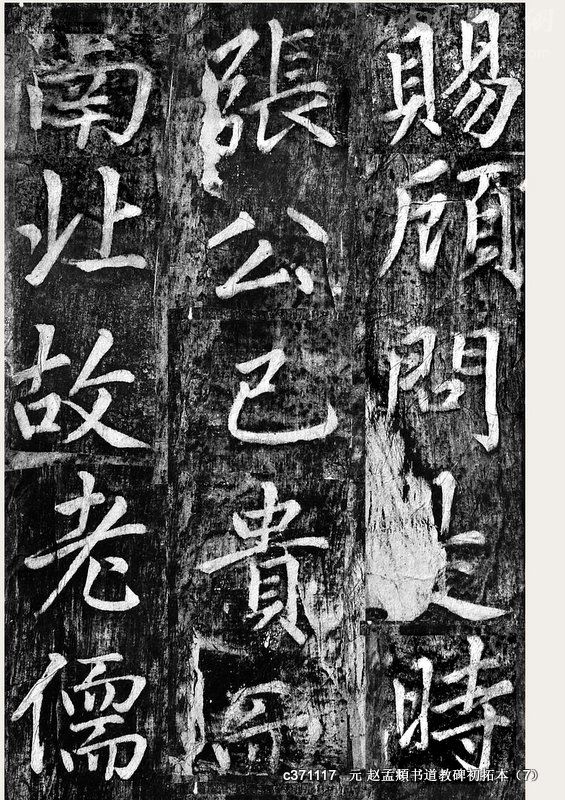 賜顧問是時
張公已貴
南北故老儒
c371117 元 赵孟頫书道教碑初拓本（7）